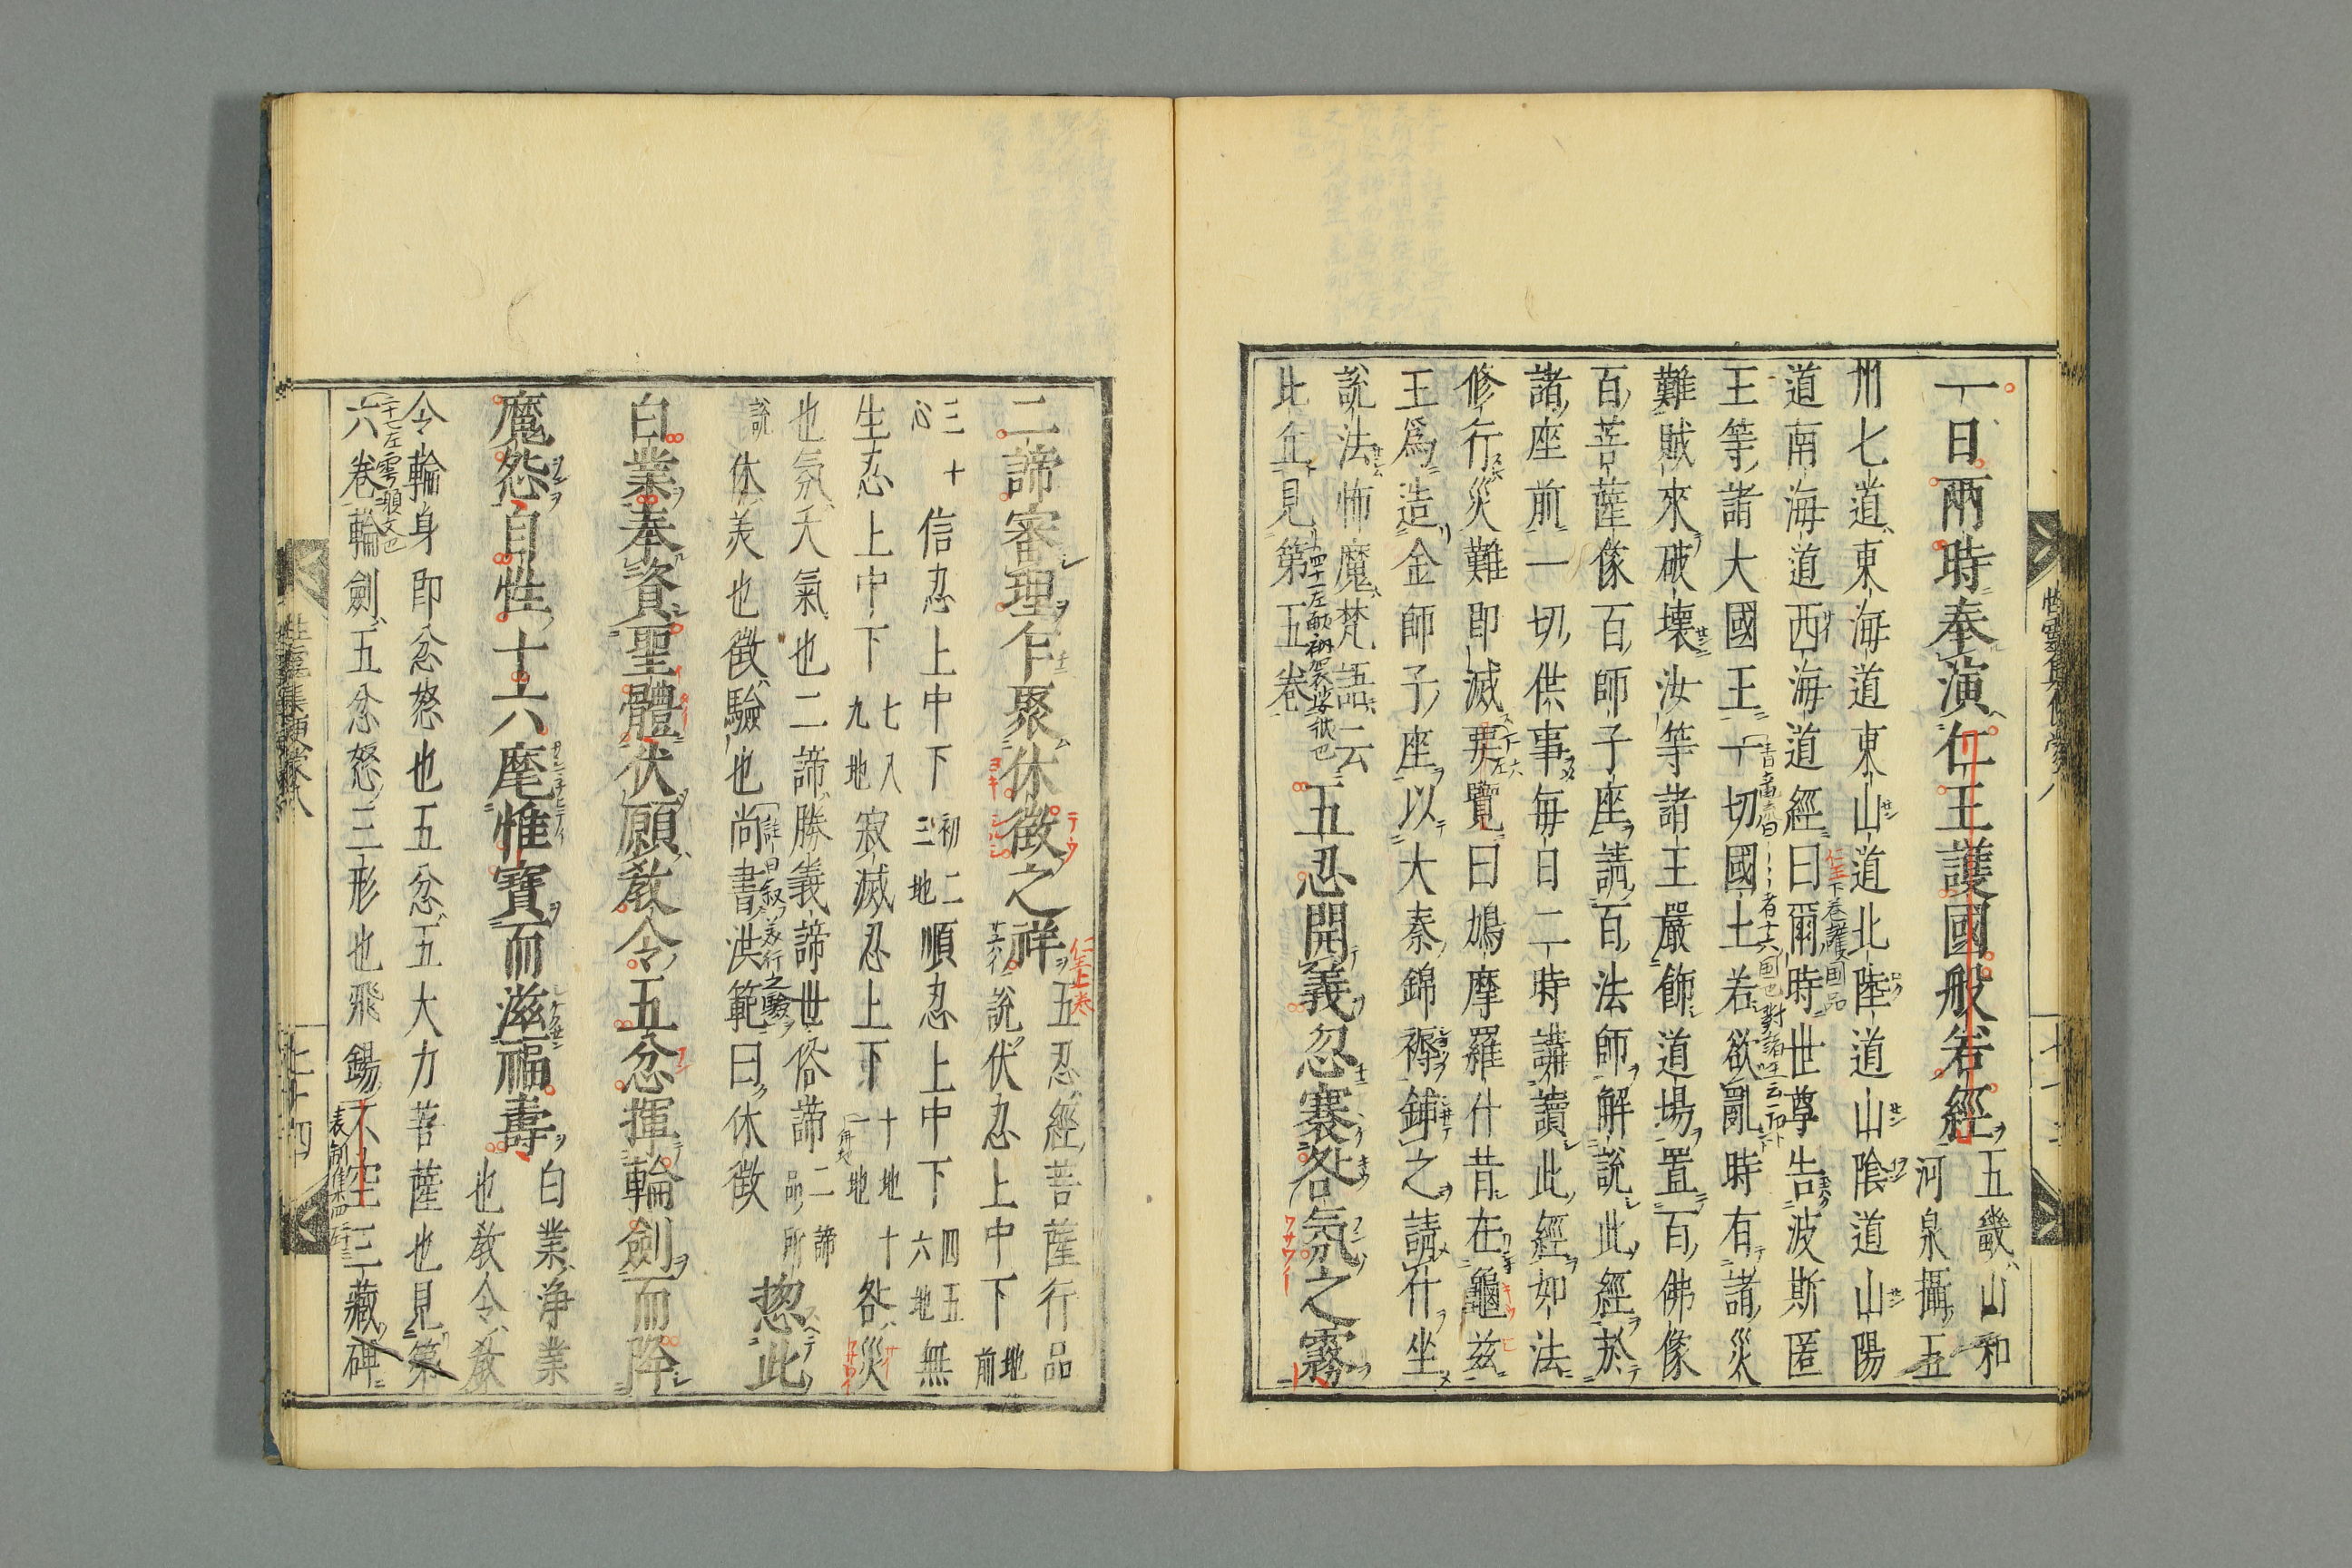 一日兩時奉演仁王護國般若經 五畿山和
河泉攝五
州七道東海道東山道北陸道山陰道山陽
道南海道西海道經曰爾時世尊告波斯匿
王等諸大國王一切國土若欲亂時有諸災
難賊來破壞汝等諸王嚴飾道場置百佛像
百菩薩像百師子座請百法師解說此經於
諸座前一切供事每日二時講讀此經如法
修行災難即滅要覽曰鳩摩羅什昔在龜茲
王爲造金師子座以大秦錦褥鋪之請什坐
說法怖魔梵語云
此丘見第五卷
五忍開義忽褰咎氛之霧
二諦審理乍聚休徵之祥 五忍經菩薩行品
說伏忍上中下地前
三十心信忍上中下初二三地順忍上中下四五六地無
生忍上中下七八九地寂滅忍上下十地十一地咎災
也氛天氣也二諦勝義諦世俗諦二諦品所
說休美也徵驗也尚書洪範曰休徵
惣此
白業奉資聖體伏願教令五忿揮輪劍而降
魔怨自性十六麾惟寶而滋福壽 白業淨業
也教令教
令輪身即忿怒也五忿五大力菩薩也見第
六卷輪劍五忿怒三形也飛錫不空三藏碑
性霊集便蒙八
七十四